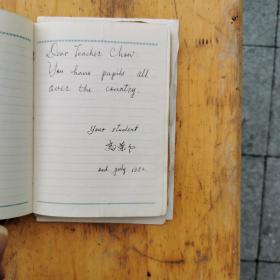 Dear Teacher Chow
You have pupils all
over the country
Your student
july